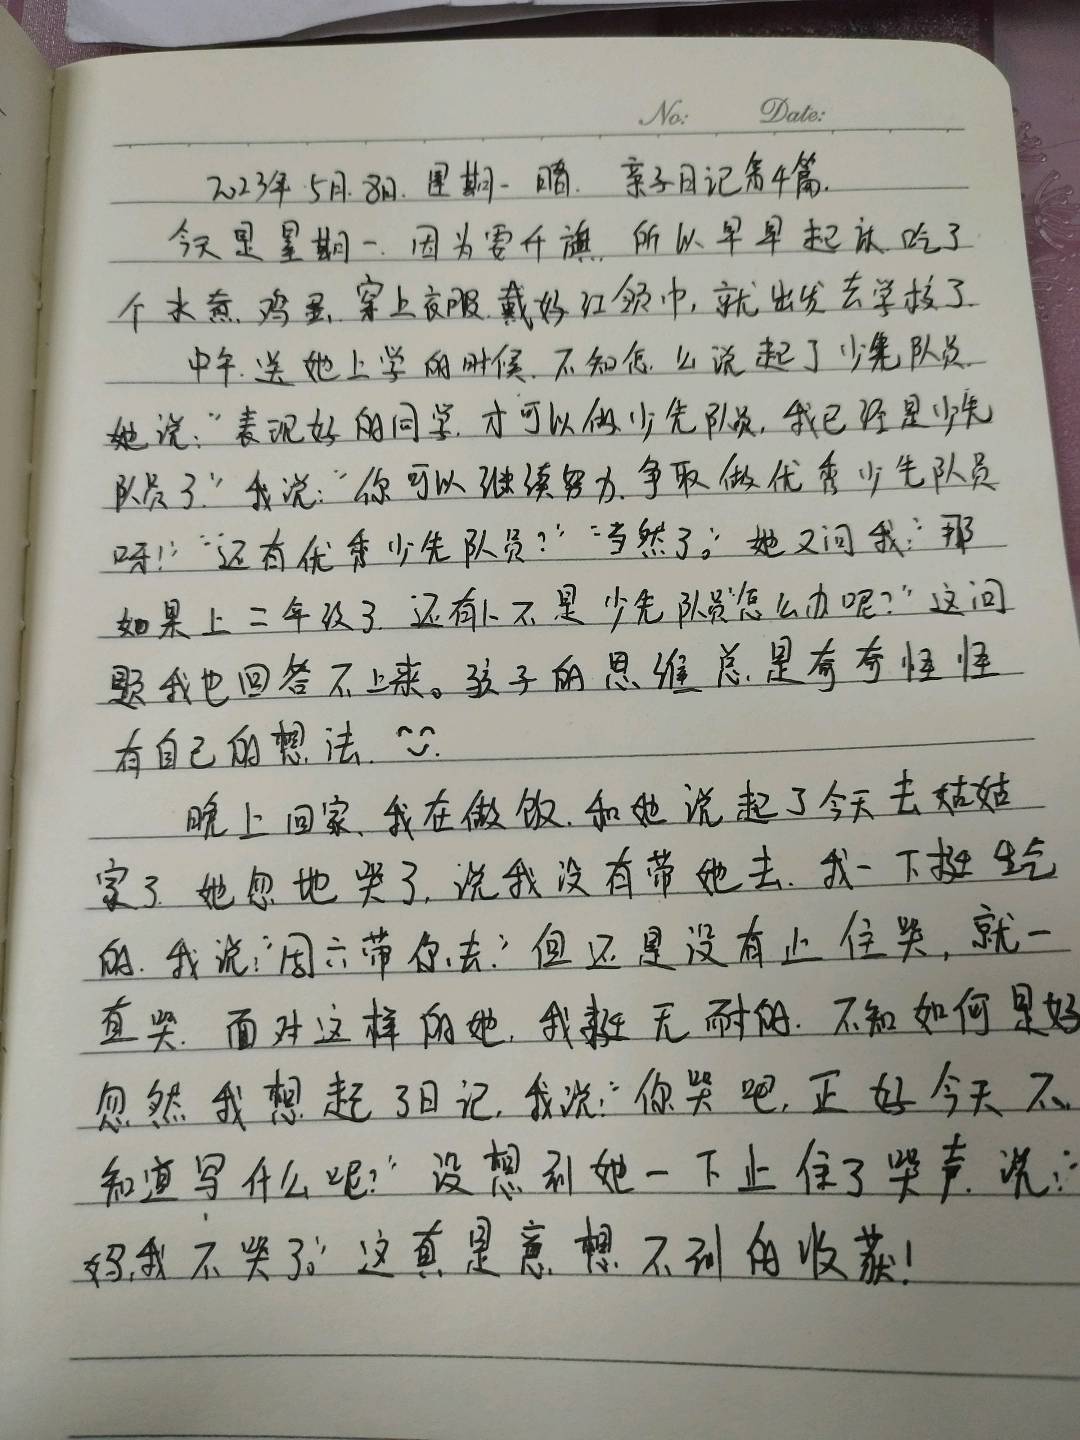 No: Date:
2023年5月8日. 星期一 晴. 亲子日记第4篇.
今天是星期一. 因为要升旗. 所以早早起床. 吃了
个水煮鸡蛋. 穿上衣服. 戴好红领巾, 就出发去学校了.
中午. 送她上学的时候. 不知怎么说起了少先队员.
她说:“表现好的同学. 才可以做少先队员, 我已经是少先
队员了.”我说:“你可以继续努力. 争取做优秀少先队员
呀!”“还有优秀少先队员?”“当然了。”她又问我:“那
如果上二年级了. 还有人不是少先队员怎么办呢?”这问
题我也回答不上来。孩子的思维总是奇奇怪怪
有自己的想法.
晚上回家、我在做饭. 和她说起了今天去姑姑
家了. 她忽地哭了, 说我没有带她去. 我一下挺生气
的. 我说:“周六带你去.”但还是没有止住哭, 就一
直哭. 面对这样的她, 我挺无耐的. 不知如何是好
忽然我想起了日记, 我说:“你哭吧, 正好今天不
知道写什么呢?”没想到她一下止住了哭声. 说:“
妈, 我不哭了。”这真是意想不到的收获!